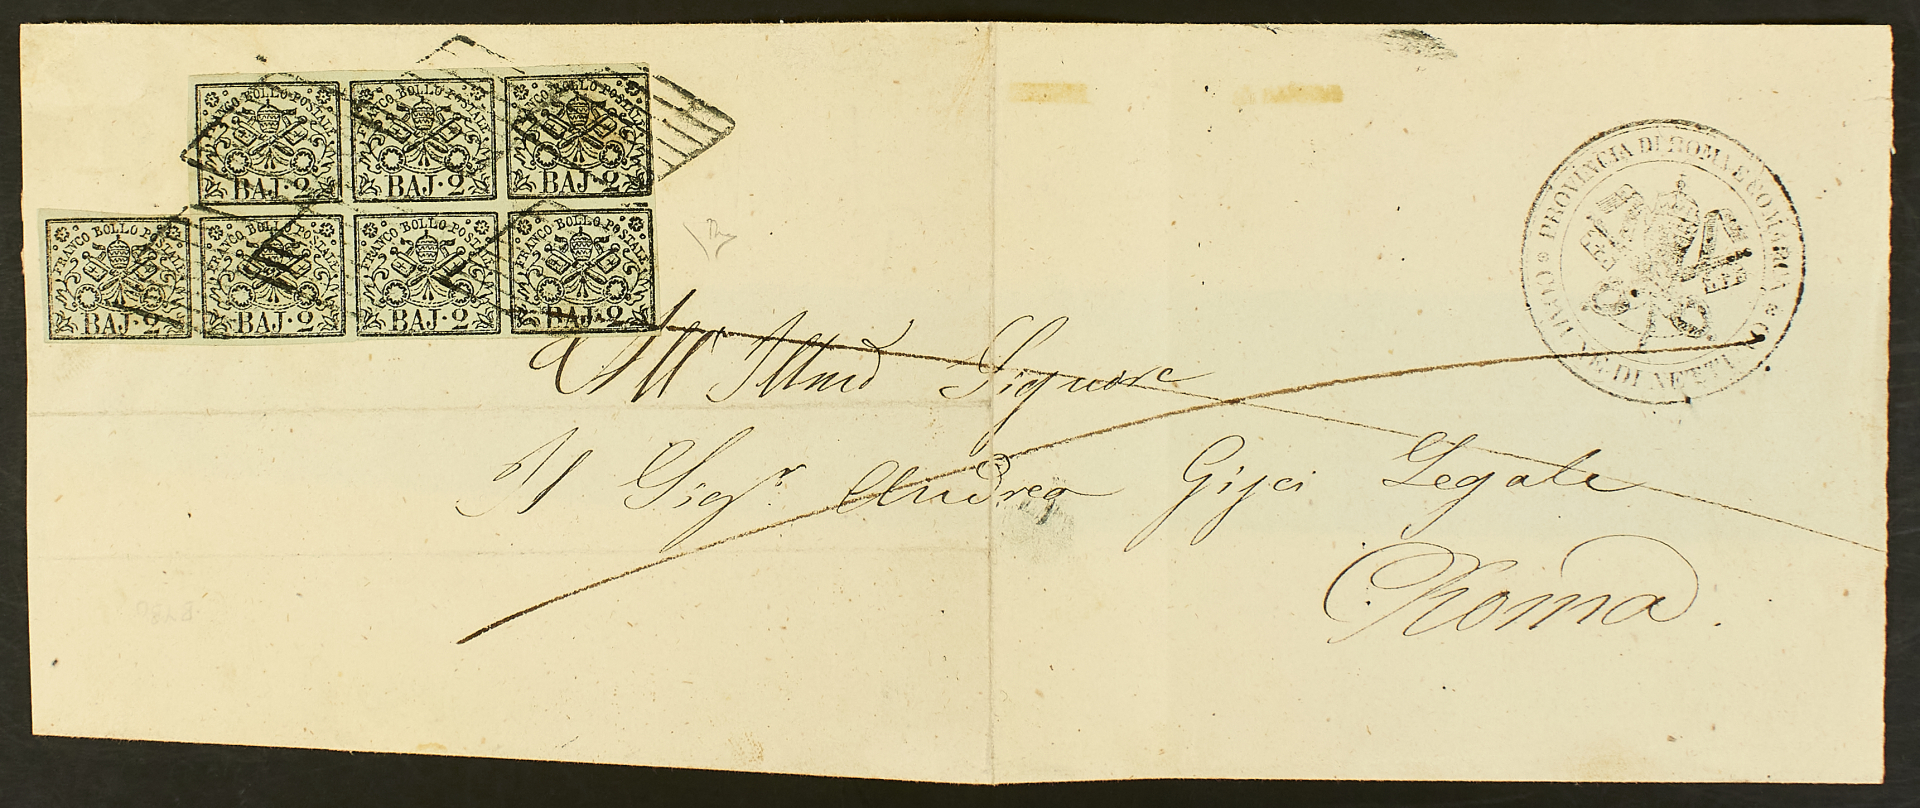 FRANCO BOLLO POSTALE FRANCO BOLLO POSTALE FRANCO BOLLO POSTALE
BAJ·2 BAJ·2 BAJ·2
FRANCO BOLLO POSTALE FRANCO BOLLO POSTALE FRANCO BOLLO POSTALE FRANCO BOLLO POSTALE
BAJ·2 BAJ·2 BAJ·2 BAJ·2
PROVINCIA DI ROMA E COMARCA
DI NETTUNO
All' Illmo Signore
Il Sigr. Andrea Gigci Legale
Roma.